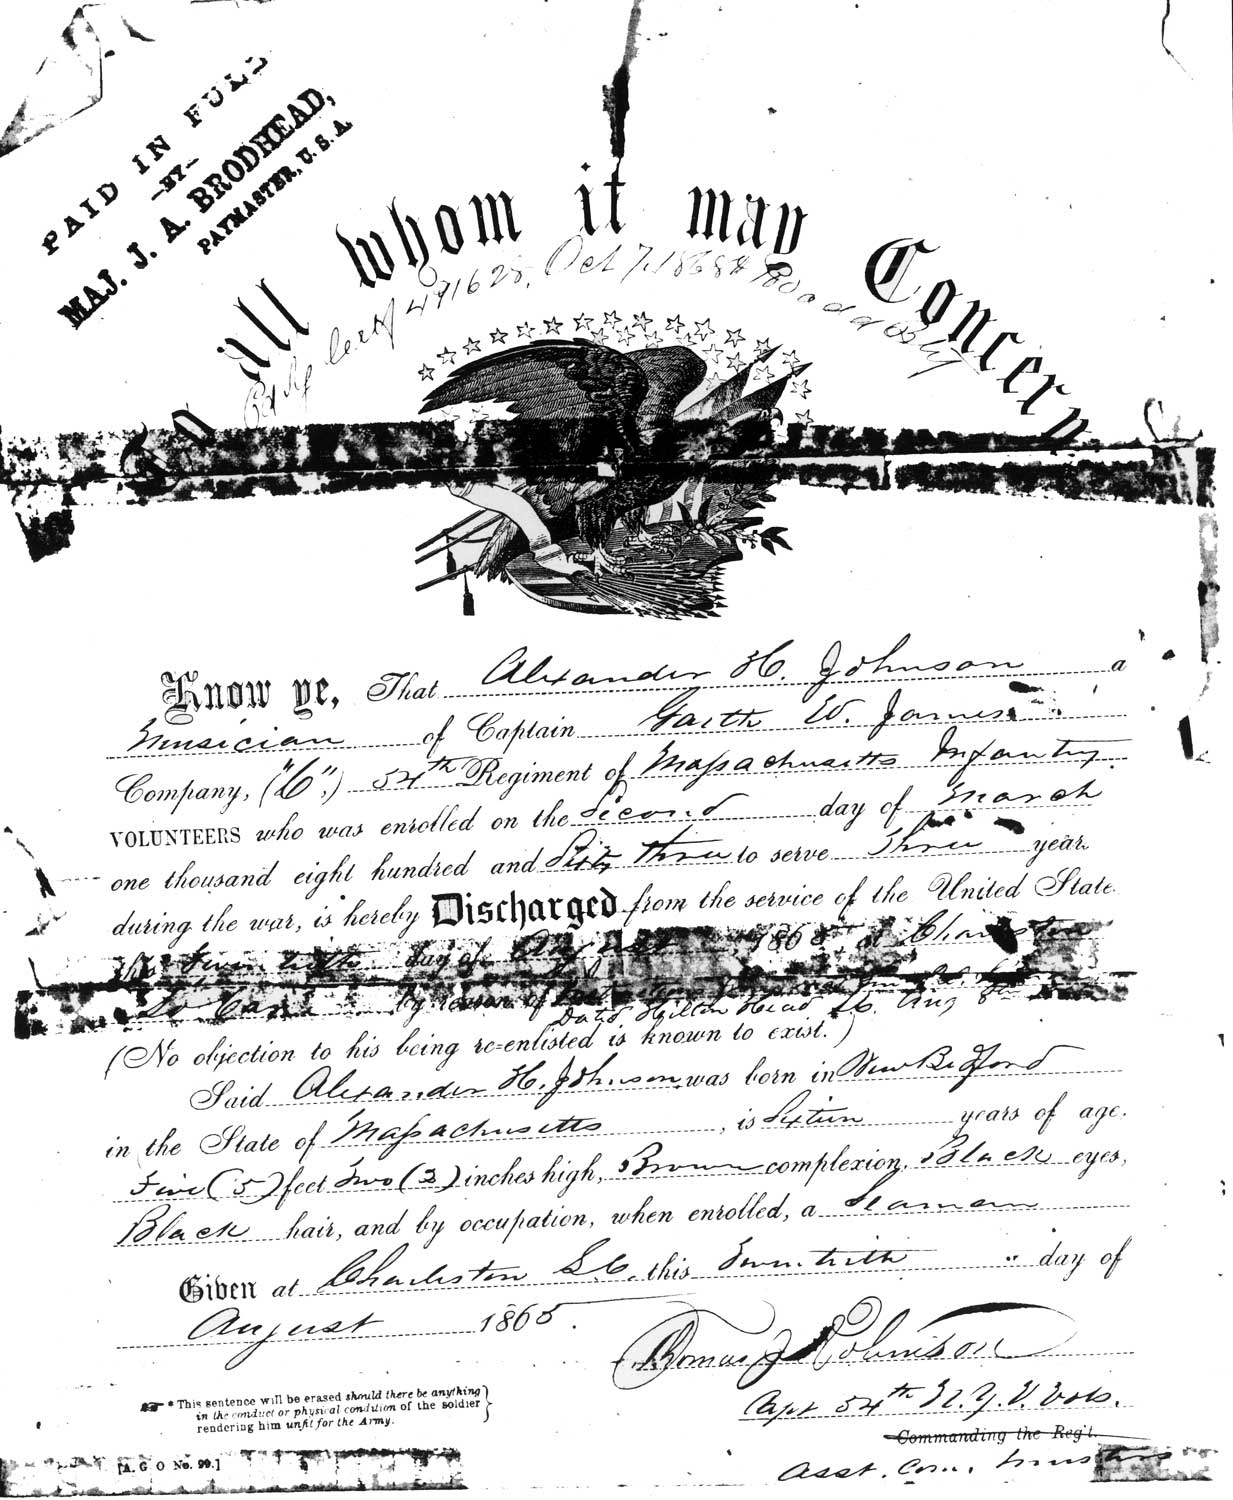 PAID IN FULL
—BY—
MAJ. J. A. BRODHEAD,
PAYMASTER, U. S. A.
To all whom it may Concern
491628, Oct 7, 1868
Know ye, That Alexander H. Johnson a
Musician of Captain Garth W. James
Company, ("C",) 54th Regiment of Massachusetts Infantry
VOLUNTEERS who was enrolled on the Second day of March
one thousand eight hundred and Sixty three to serve Three year
during the war, is hereby Discharged from the service of the United State
this Twentieth day of August, 1865, at Charleston
So Car by reason of
Dated Hilton Head, So. Aug 8th
(No objection to his being re-enlisted is known to exist.*)
Said Alexander H. Johnson was born in New Bedford
in the State of Massachusetts, is Sixteen years of age.
Five (5) feet Two (2) inches high, Brown complexion, Black eyes,
Black hair, and by occupation, when enrolled, a Seaman
Given at Charleston S.C. this Twentieth day of
August 1865.
Thomas J Robinson
Capt 54th N.Y.V. Vols.
Commanding the Reg't.
Asst. Com. Musters
*This sentence will be erased should there be anything
in the conduct or physical condition of the soldier
rendering him unfit for the Army.
[A. G. O No. 99.]